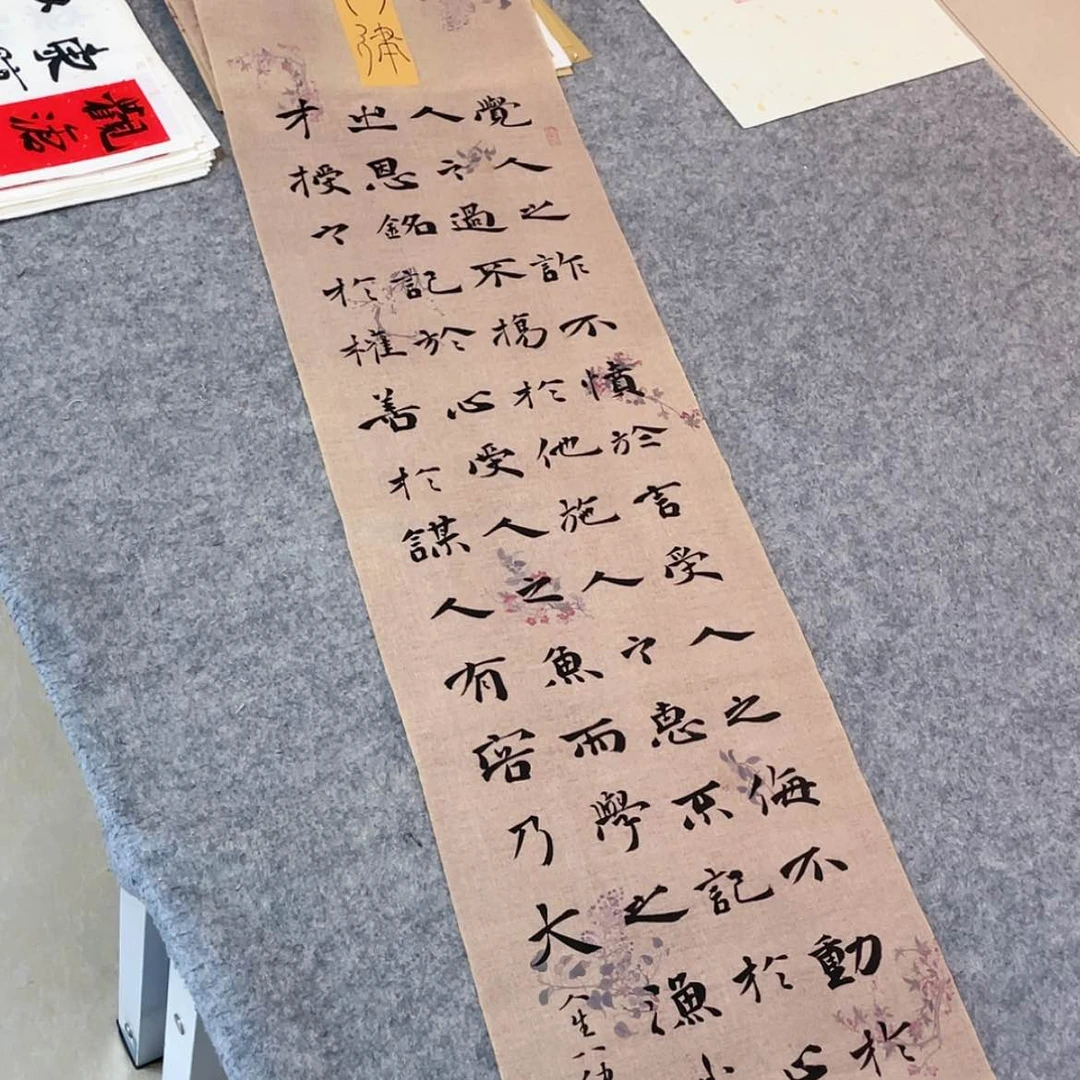 律
覺人之詐不憤於言受人之侮不動於
人之過不揚於他施人之惠不記於心
之恩銘記於心受人之魚而學之漁
才授之於權善於謀人有容乃大
人生八律
觀滄